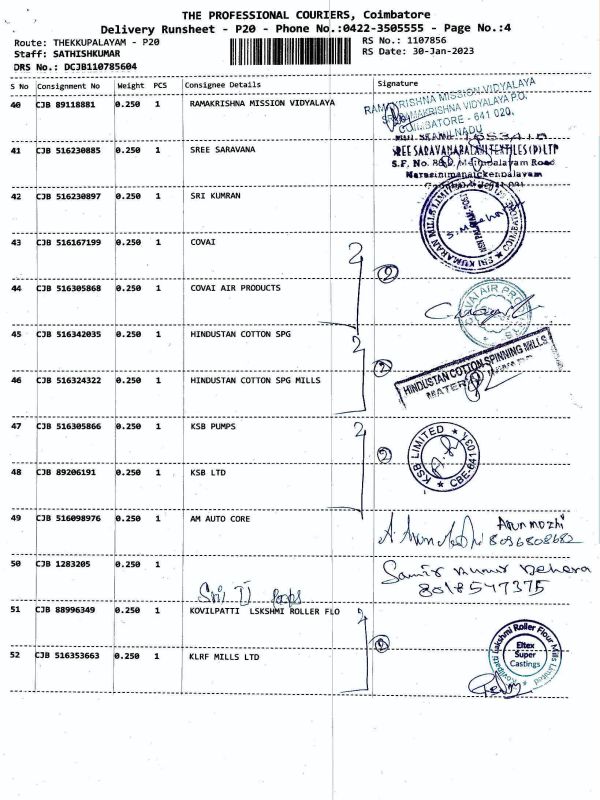 THE PROFESSIONAL COURIERS, Coimbatore
Delivery Runsheet - P20 - Phone No.:0422-3505555 - Page No.:4
Route: THEKKUPALAYAM - P20 RS No.: 1107856
Staff: SATHISHKUMAR RS Date: 30-Jan-2023
DRS No.: DCJB110785604
S No Consignment No Weight PCS Consignee Details Signature
40 CJB 89118881 0.250 1 RAMAKRISHNA MISSION VIDYALAYA
RAMAKRISHNA MISSION VIDYALAYA
SRI RAMAKRISHNA VIDYALAYA P.O.
COIMBATORE - 641 020.
TAMIL NADU
41 CJB 516230885 0.250 1 SREE SARAVANA
S.F. No.
42 CJB 516230897 0.250 1 SRI KUMRAN
SRI KUMARAN MILLS LIMITED COIMBATORE
43 CJB 516167199 0.250 1 COVAI
2 2
44 CJB 516305868 0.250 1 COVAI AIR PRODUCTS
COVAI AIR PRO
45 CJB 516342035 0.250 1 HINDUSTAN COTTON SPG
2 2
46 CJB 516324322 0.250 1 HINDUSTAN COTTON SPG MILLS
HINDUSTAN COTTON SPINNING MILLS
47 CJB 516305866 0.250 1 KSB PUMPS
2 2
KSB LIMITED CBE-641 031
48 CJB 89206191 0.250 1 KSB LTD
49 CJB 516098976 0.250 1 AM AUTO CORE
Arunmozhi
50 CJB 1283205 0.250 1
Samir Kumar Behera
8018547375
Sri
51 CJB 88996349 0.250 1 KOVILPATTI LSKSHMI ROLLER FLO
2 2
Kovilpatti Lakshmi Roller Flour Mills Limited
Eltex
Super
Castings
52 CJB 516353663 0.250 1 KLRF MILLS LTD